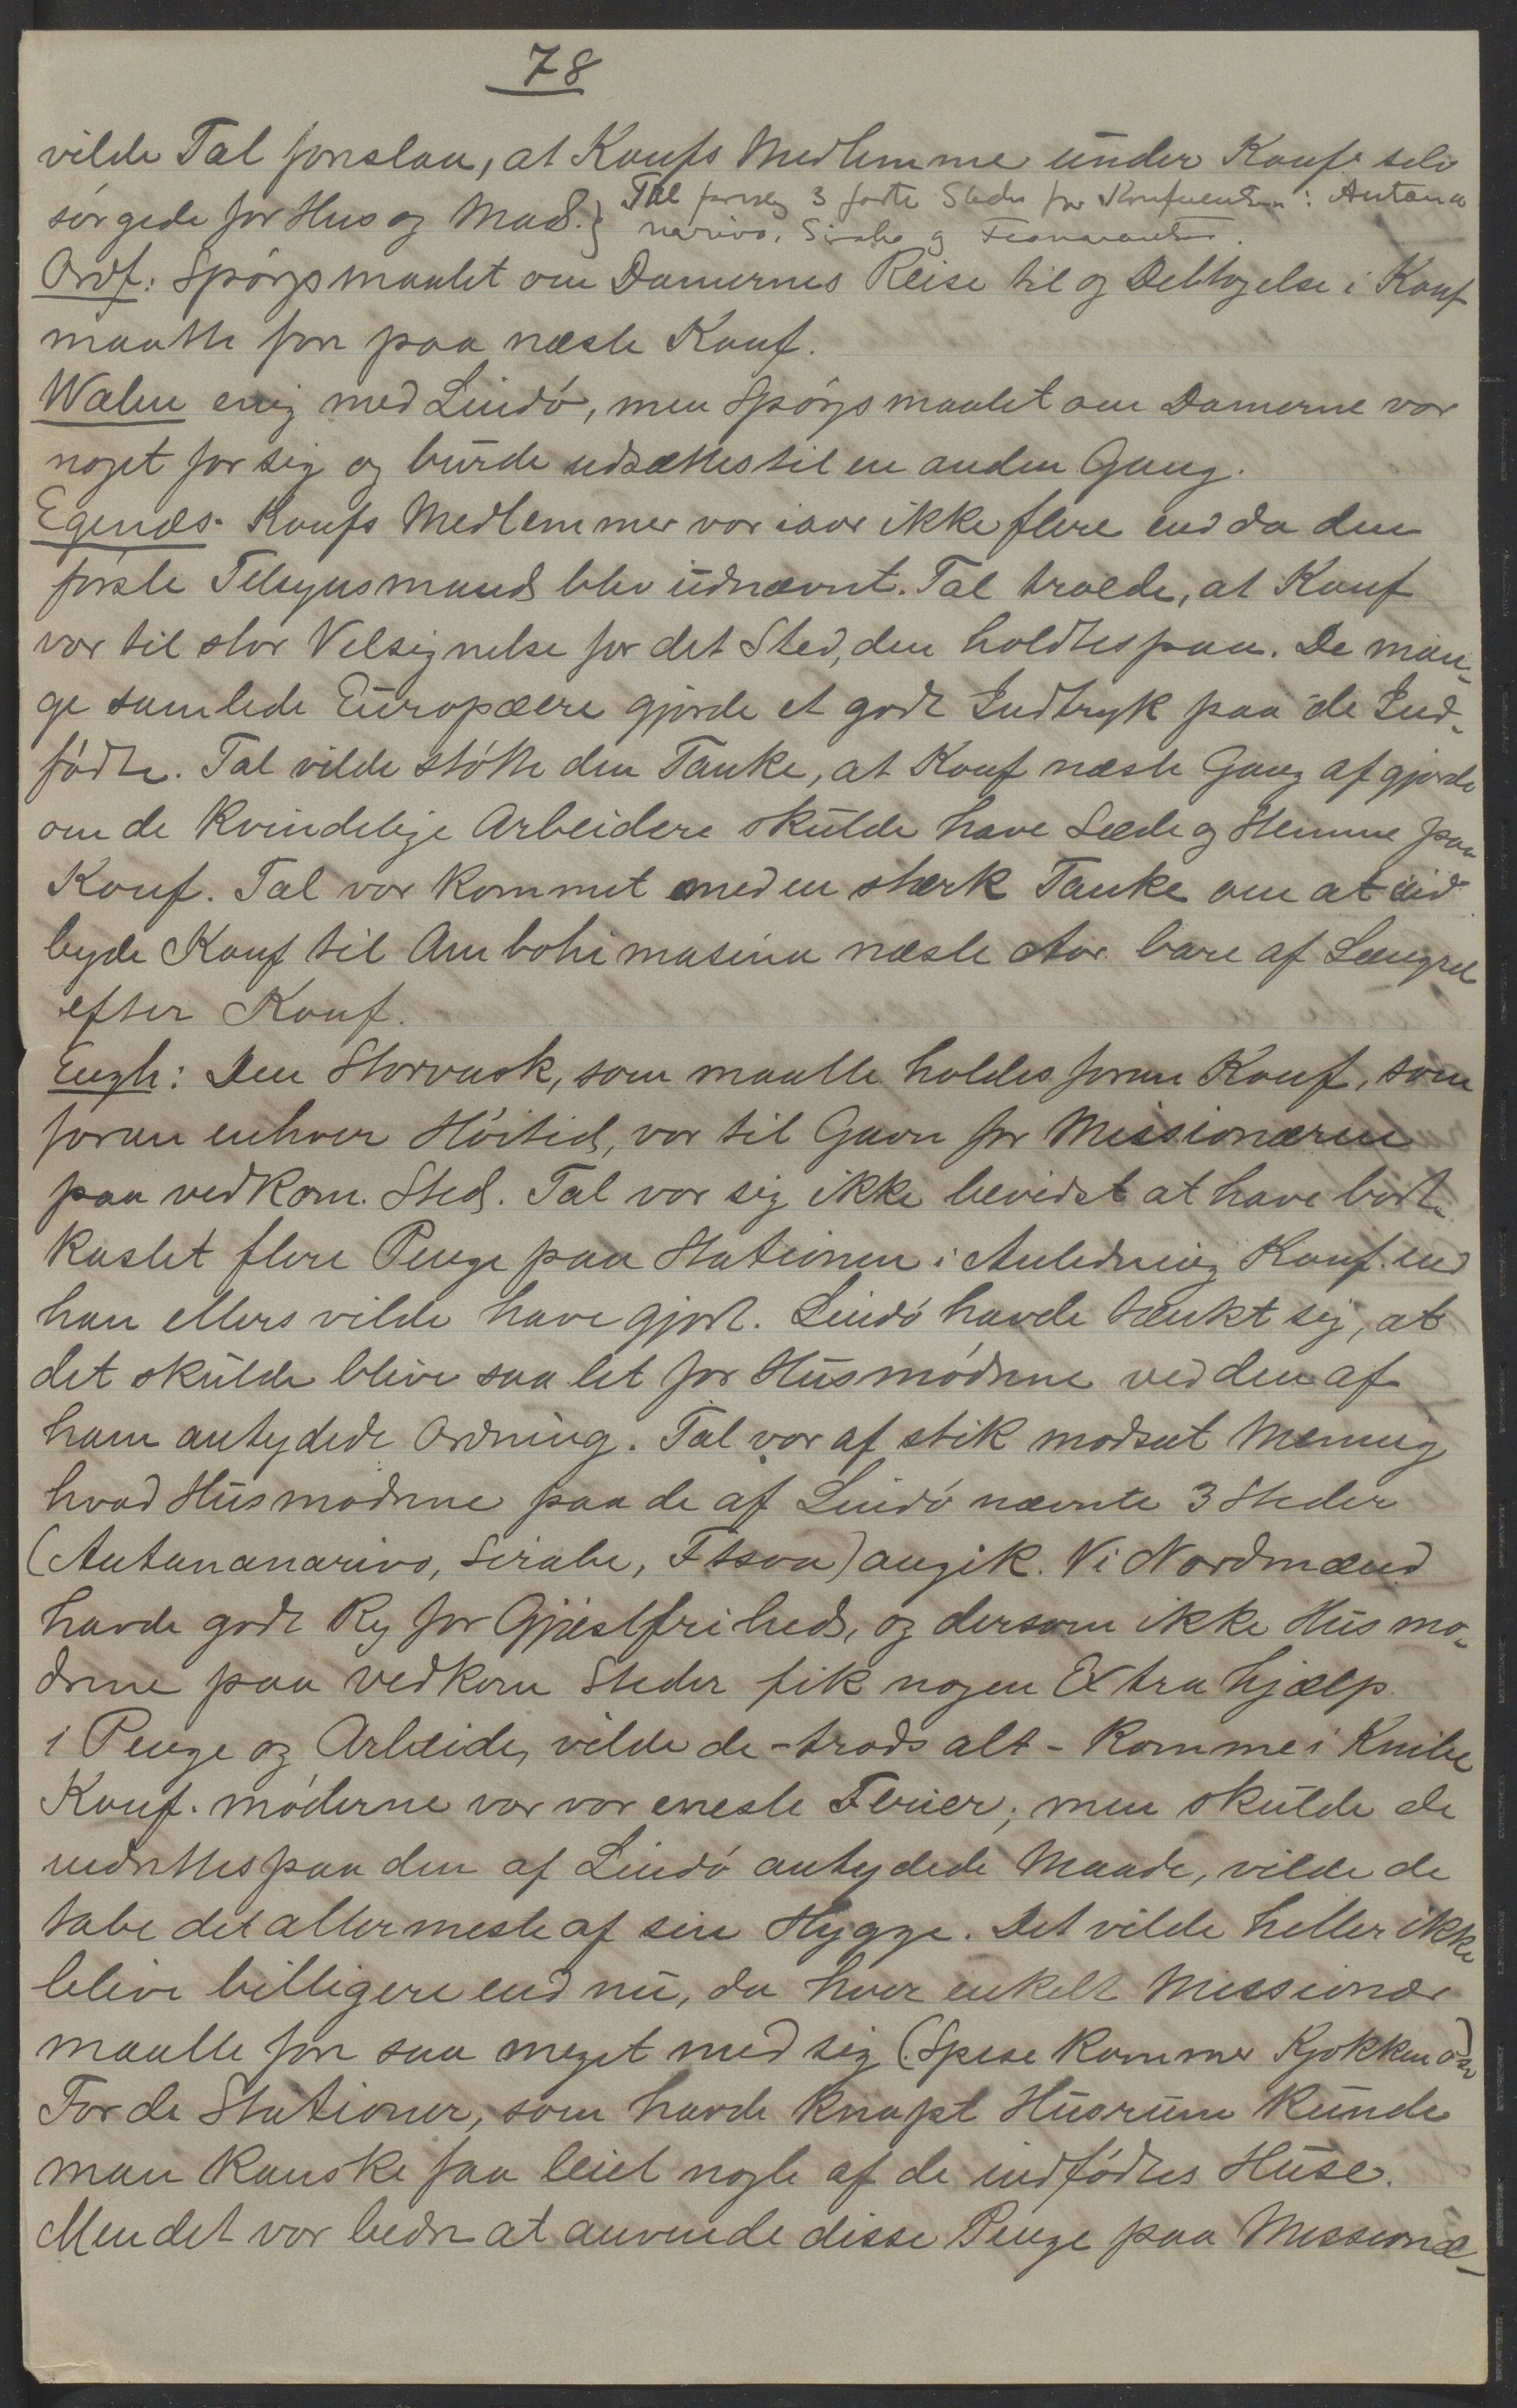 78
vilde Tal foreslaa, at Konfs Medlemme under Konf. selv
sørgede for Hus og Mad.} Tal foreslog 3 faste Steder for Konferentsen: Antana
narivo, Sirabe og Fianarantsoa.
Ordf: Spørgsmaalet om Damernes Reise til og Deltagelse i Konf
maatte fore paa næste Konf.
Walen enig med Lindø, men Spørgsmaalet om Damerne var
noget for sig og burde udsættes til en anden Gang.
Egenæs. Konfs Medlemmer var iaar ikke flere end da den
første Tilsynsmand blev udnævnt. Tal. troede, at Konf
var til stor Velsignelse for det Sted, den holdtes paa. De man-
ge samlede Europæere gjorde et godt Indtryk paa de Ind-
fødte. Tal vilde støtte den Tanke, at Konf næste Gang afgjorde
om de kvindelige Arbeidere skulde have Sæde og Stemme paa
Konf. Tal var kommet med en stærk Tanke om at ind
byde Konf til Ambohimasina næste Aar bare af Længsel
efter Konf.
Engh: Den Storvask, som maatte holdes foran Konf, som
foran enhver Høitid, var til Gavn for Missionæren
paa vedkom. Sted. Tal var sig ikke bevidst at have bort-
kastet flere Penge paa Stationen i Anledning Konf. end
han ellers vilde have gjort. Lindø havde tænkt sig, at
det skulde blive saa let for Husmødrene ved den af
ham antydede Ordning. Tal var af stik modsat Mening
hvad Husmødrene paa de af Lindø nævnte 3 Steder
(Antananarivo, Sirabe, Ftsoa) angik. Vi Nordmænd
havde godt Ry for Gjæstfrihed, og dersom ikke Husmø-
drene paa vedkom Steder fik nogen Extra hjælp
i Penge og Arbeide, vilde de - trods alt - komme i Knibe
Konf. møderne var vor eneste Ferier; men skulde de
indrettes paa den af Lindø antydede Maade, vilde de
tabe det allermeste af sin Hygge. Det vilde heller ikke
blive billigere end nu, da hver enkelt Missionær
maatte føre saa meget med sig (Spise kammer Kjøkken osv)
For de Stationer, som havde knapt Husrum kunde
man kanske faa leiet nogle af de indfødtes Huse.
Men det var bedre at anvende disse Penge paa Missionæ-